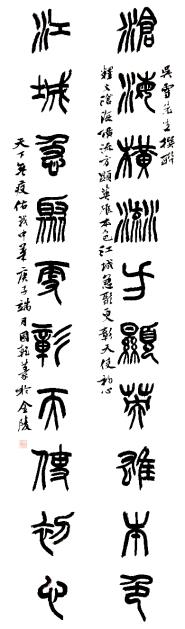 吳雪先生撰聯
滄海橫流方顯英雄本色
釋文滄海橫流方顯英雄本色江城急聚更彰天使初心
江城急聚更彰天使初心
天下疫佑我中華庚子端月國篆於金陵